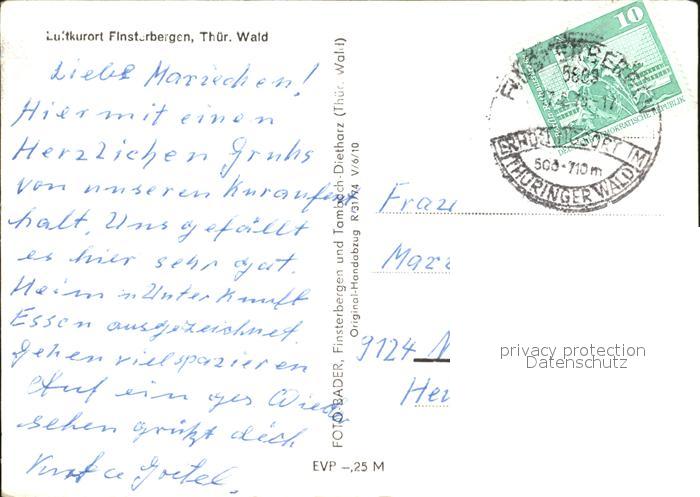 Luftkurort Finsterbergen, Thür. Wald
Liebe Mariechen!
Hiermit einen
Herzlichen Gruhs
von unseren Kuraufent
halt. Uns gefällt
es hier sehr gut.
Heim u Unterkunft
Essen ausgezeichnet
gehen viel spazieren
Auf ein ges Wieder
sehen grüßt dich
Kurt u Gretel.
FOTO-BADER, Finsterbergen und Tambach-Dietharz (Thür. Wald)
Original-Handabzug R 31/74 V/6/10
EVP -,25 M
10
DEMOKRATISCHE REPUBLIK
FINSTERBERGEN
5809
ERHOLUNGSORT IM
500-710m
THÜRINGER WALD
Frau
Mar
9124 N
Her
privacy protection
Datenschutz